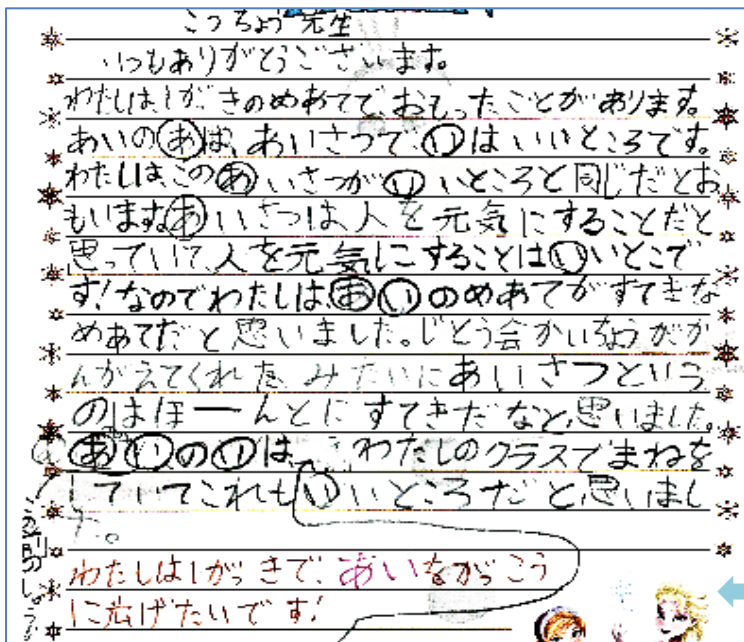 こうちょう先生
いつもありがとうございます。
わたしは1がっきのめあてで、おもったことがあります。
あいのあは、あいさつで、いはいいところです。
わたしは、このあいさつがいいところと同じだとお
もいます。あいさつは人を元気にすることだと
思っていて、人を元気にすることはいいとこで
す!なのでわたしはあいのめあてがすてきな
めあてだと思いました。じどう会かいちょうがか
んがえてくれた みたいにあいさつという
のはほーんとにすてきだなと、思いました。
あいのいは、 わたしのクラスでまねを
していてこれもいいところだと、思いまし
た。
わたしは1がっきで、あいながっこう
に広げたいです!